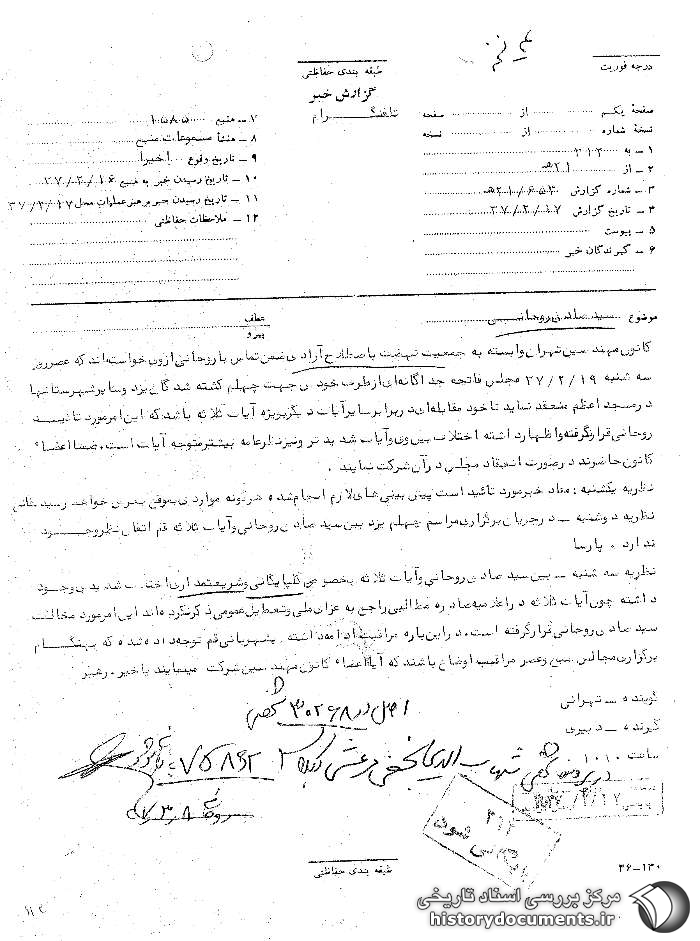 درجه فوریت
طبقه بندی حفاظتی
گزارش خبر
تلفنگرام
صفحهٔ یکم از صفحه
نسخهٔ شماره از نسخه
۱ – به ۳۱۲
۲ – از ۲۱ ه‍
۳ – شماره گزارش
۴ – تاریخ گزارش ۳۷/۲/۱۷
۵ – پیوست
۶ – گیرندگان خبر
۷ – منبع ۱۰۵۸۵
۸ – منشأ مسموعات منبع
۹ – تاریخ وقوع اخیرا
۱۰ – تاریخ رسیدن خبر به منبع ۳۷/۲/۱۶
۱۱ – تاریخ رسیدن خبر برهبر عملیات محل ۳۷/۲/۱۷
۱۲ – ملاحظات حفاظتی
موضوع سید صادق روحانی
عطف
پیرو
کانون مهندسین تهران وابسته به جمعیت نهضت باصطلاح آزادی ضمن تماس با روحانی ازوی خواسته‌اند که عصر روز
سه شنبه ۲۷/۲/۱۹ مجلس فاتحه جداگانه‌ای ازطرف خود بجهت چهلم کشته شدگان یزد وسایر شهرستانها
درمسجد اعظم منعقد نماید تا خود مقابله‌ای دربرابر سایر آیات دیگر بویژه آیات ثلاثه باشد که این امر مورد تائید
روحانی قرارگرفته واظهارداشته اختلاف بین وی وآیات شدید تر ونیز نظر عامه بیشتر متوجه آیات است، ضمنا اعضاء
کانون حاضرند درصورت انعقاد مجلس درآن شرکت نمایند .
نظریه یکشنبه : مفاد خبر مورد تائید است پیش بینی های لازم انجام شده هرگونه مواردی بموقع بعرض خواهد رسید
نظریه دوشنبه – درجریان برگزاری مراسم چهلم یزد بین سید صادق روحانی وآیات ثلاثه قم اتفاق نظر وجود
ندارد . پارسا
نظریه سه شنبه – بین سید صادق روحانی وآیات ثلاثه بخصوص گلپایگانی وشریعتمداری اختلاف شدیدی وجود
داشته چون آیات ثلاثه دراعلامیه صادره مطالبی راجع به عزای ملی وتعطیل عمومی ذکر نکرده‌اند این امر مورد مخالفت
سید صادق روحانی قرارگرفته است، دراین باره مراقبت ادامه داشته بشهربانی قم توجه داده شده که بهنگام
برگزاری مجالس صبح وعصر مراقب اوضاع باشند که آیا اعضاء کانون مهندسین شرکت مینمایند یا خیر. رهبر
گوینده – تهرانی
گیرنده – دبیری
ساعت ۱۰۱۰
اصل در ۳۰۲۶۸
شهاب الدین نجفی مرعشی
۳۱۲
طبقه بندی حفاظتی
۳۶–۱۳۰
مرکز بررسی اسناد تاریخی
historydocuments.ir